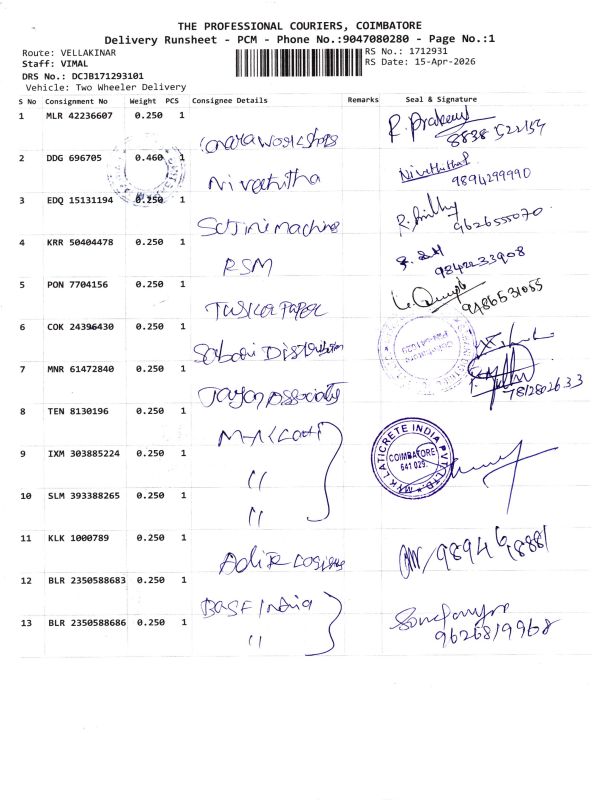 THE PROFESSIONAL COURIERS, COIMBATORE
Delivery Runsheet - PCM - Phone No.:9047080280 - Page No.:1
Route: VELLAKINAR
RS No.: 1712931
Staff: VIMAL
RS Date: 15-Apr-2026
DRS No.: DCJB171293101
Vehicle: Two Wheeler Delivery
S No Consignment No Weight PCS Consignee Details Remarks Seal & Signature
1 MLR 42236607 0.250 1
R. Prakash
8838 522154
2 DDG 696705 0.460 1
Nivethitha
Nivethitha P
9894299990
3 EDQ 15131194 0.250 1
machine
9626555070
4 KRR 50404478 0.250 1
RSM
9842233908
5 PON 7704156 0.250 1
Paper
9486531055
6 COK 24396430 0.250 1
Sabari Distribution
7 MNR 61472840 0.250 1
Associates
7812802633
8 TEN 8130196 0.250 1
MYK LATICRETE INDIA PVT. LTD.
COIMBATORE
641 029.
9 IXM 303885224 0.250 1
"
10 SLM 393388265 0.250 1
"
11 KLK 1000789 0.250 1
12 BLR 2350588683 0.250 1
BASF India
13 BLR 2350588686 0.250 1
"
9626819968